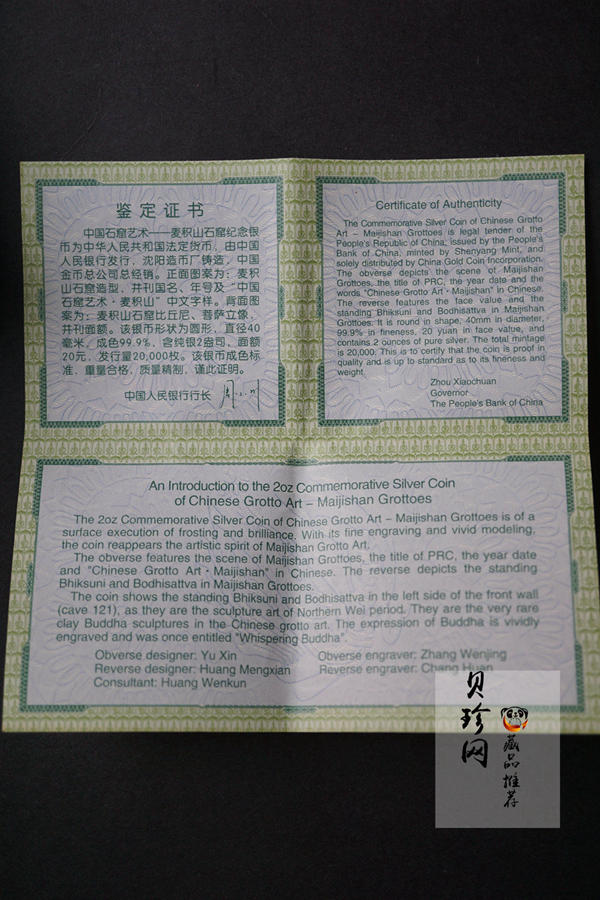 鉴定证书
中国石窟艺术——麦积山石窟纪念银
币为中华人民共和国法定货币，由中国
人民银行发行，沈阳造币厂铸造，中国
金币总公司总经销。正面图案为：麦积
山石窟造型，并刊国名、年号及“中国
石窟艺术·麦积山”中文字样。背面图
案为：麦积山石窟比丘尼、菩萨立像，
并刊面额。该银币形状为圆形，直径40
毫米，成色99.9%，含纯银2盎司，面额
20元，发行量20,000枚。该银币成色标
准，重量合格，质量精制，谨此证明。
中国人民银行行长
Certificate of Authenticity
The Commemorative Silver Coin of Chinese Grotto
Art – Maijishan Grottoes is legal tender of the
People's Republic of China, issued by the People's
Bank of China, minted by Shenyang Mint, and
solely distributed by China Gold Coin Incorporation.
The obverse depicts the scene of Maijishan
Grottoes, the title of PRC, the year date and the
words "Chinese Grotto Art·Maijishan" in Chinese.
The reverse features the face value and the
standing Bhiksuni and Bodhisattva in Maijishan
Grottoes. It is round in shape, 40mm in diameter,
99.9% in fineness, 20 yuan in face value, and
contains 2 ounces of pure silver. The total mintage
is 20,000. This is to certify that the coin is proof in
quality and is up to standard as to its fineness and
weight.
Zhou Xiaochuan
Governor
The People's Bank of China
An Introduction to the 2oz Commemorative Silver Coin
of Chinese Grotto Art – Maijishan Grottoes
The 2oz Commemorative Silver Coin of Chinese Grotto Art – Maijishan Grottoes is of a
surface execution of frosting and brilliance. With its fine engraving and vivid modeling,
the coin reappears the artistic spirit of Maijishan Grotto Art.
The obverse features the scene of Maijishan Grottoes, the title of PRC, the year date
and "Chinese Grotto Art·Maijishan" in Chinese. The reverse depicts the standing
Bhiksuni and Bodhisattva in Maijishan Grottoes.
The coin shows the standing Bhiksuni and Bodhisattva in the left side of the front wall
(cave 121), as they are the sculpture art of Northern Wei period. They are the very rare
clay Buddha sculptures in the Chinese grotto art. The expression of Buddha is vividly
engraved and was once entitled "Whispering Buddha".
Obverse designer: Yu Xin
Obverse engraver: Zhang Wenjing
Reverse designer: Huang Mengxian
Reverse engraver: Chang Huan
Consultant: Huang Wenkun
贝珍网
藏品推荐